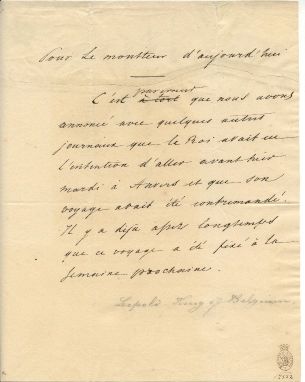 Pour Le moniteur d'aujourd'hui
par erreur
C'est à tort que nous avons
annoncé avec quelques autres
journaux que le Roi avait eu
l'intention d'aller avant hier
mardi à Anvers et que son
voyage avait été contremandé.
Il y a déjà assez longtemps
que ce voyage a été fixé à la
semaine prochaine.
Leopold King of Belgium